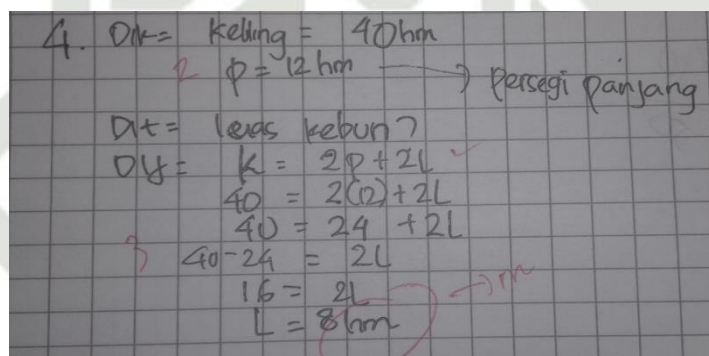 4. Dik = Keliling = 40 hm
2 p = 12 hm → Persegi panjang
Dit = luas kebun?
Dij = K = 2p + 2L
40 = 2(12) + 2L
40 = 24 + 2L
3 40 - 24 = 2L
16 = 2L
L = 8 hm → m